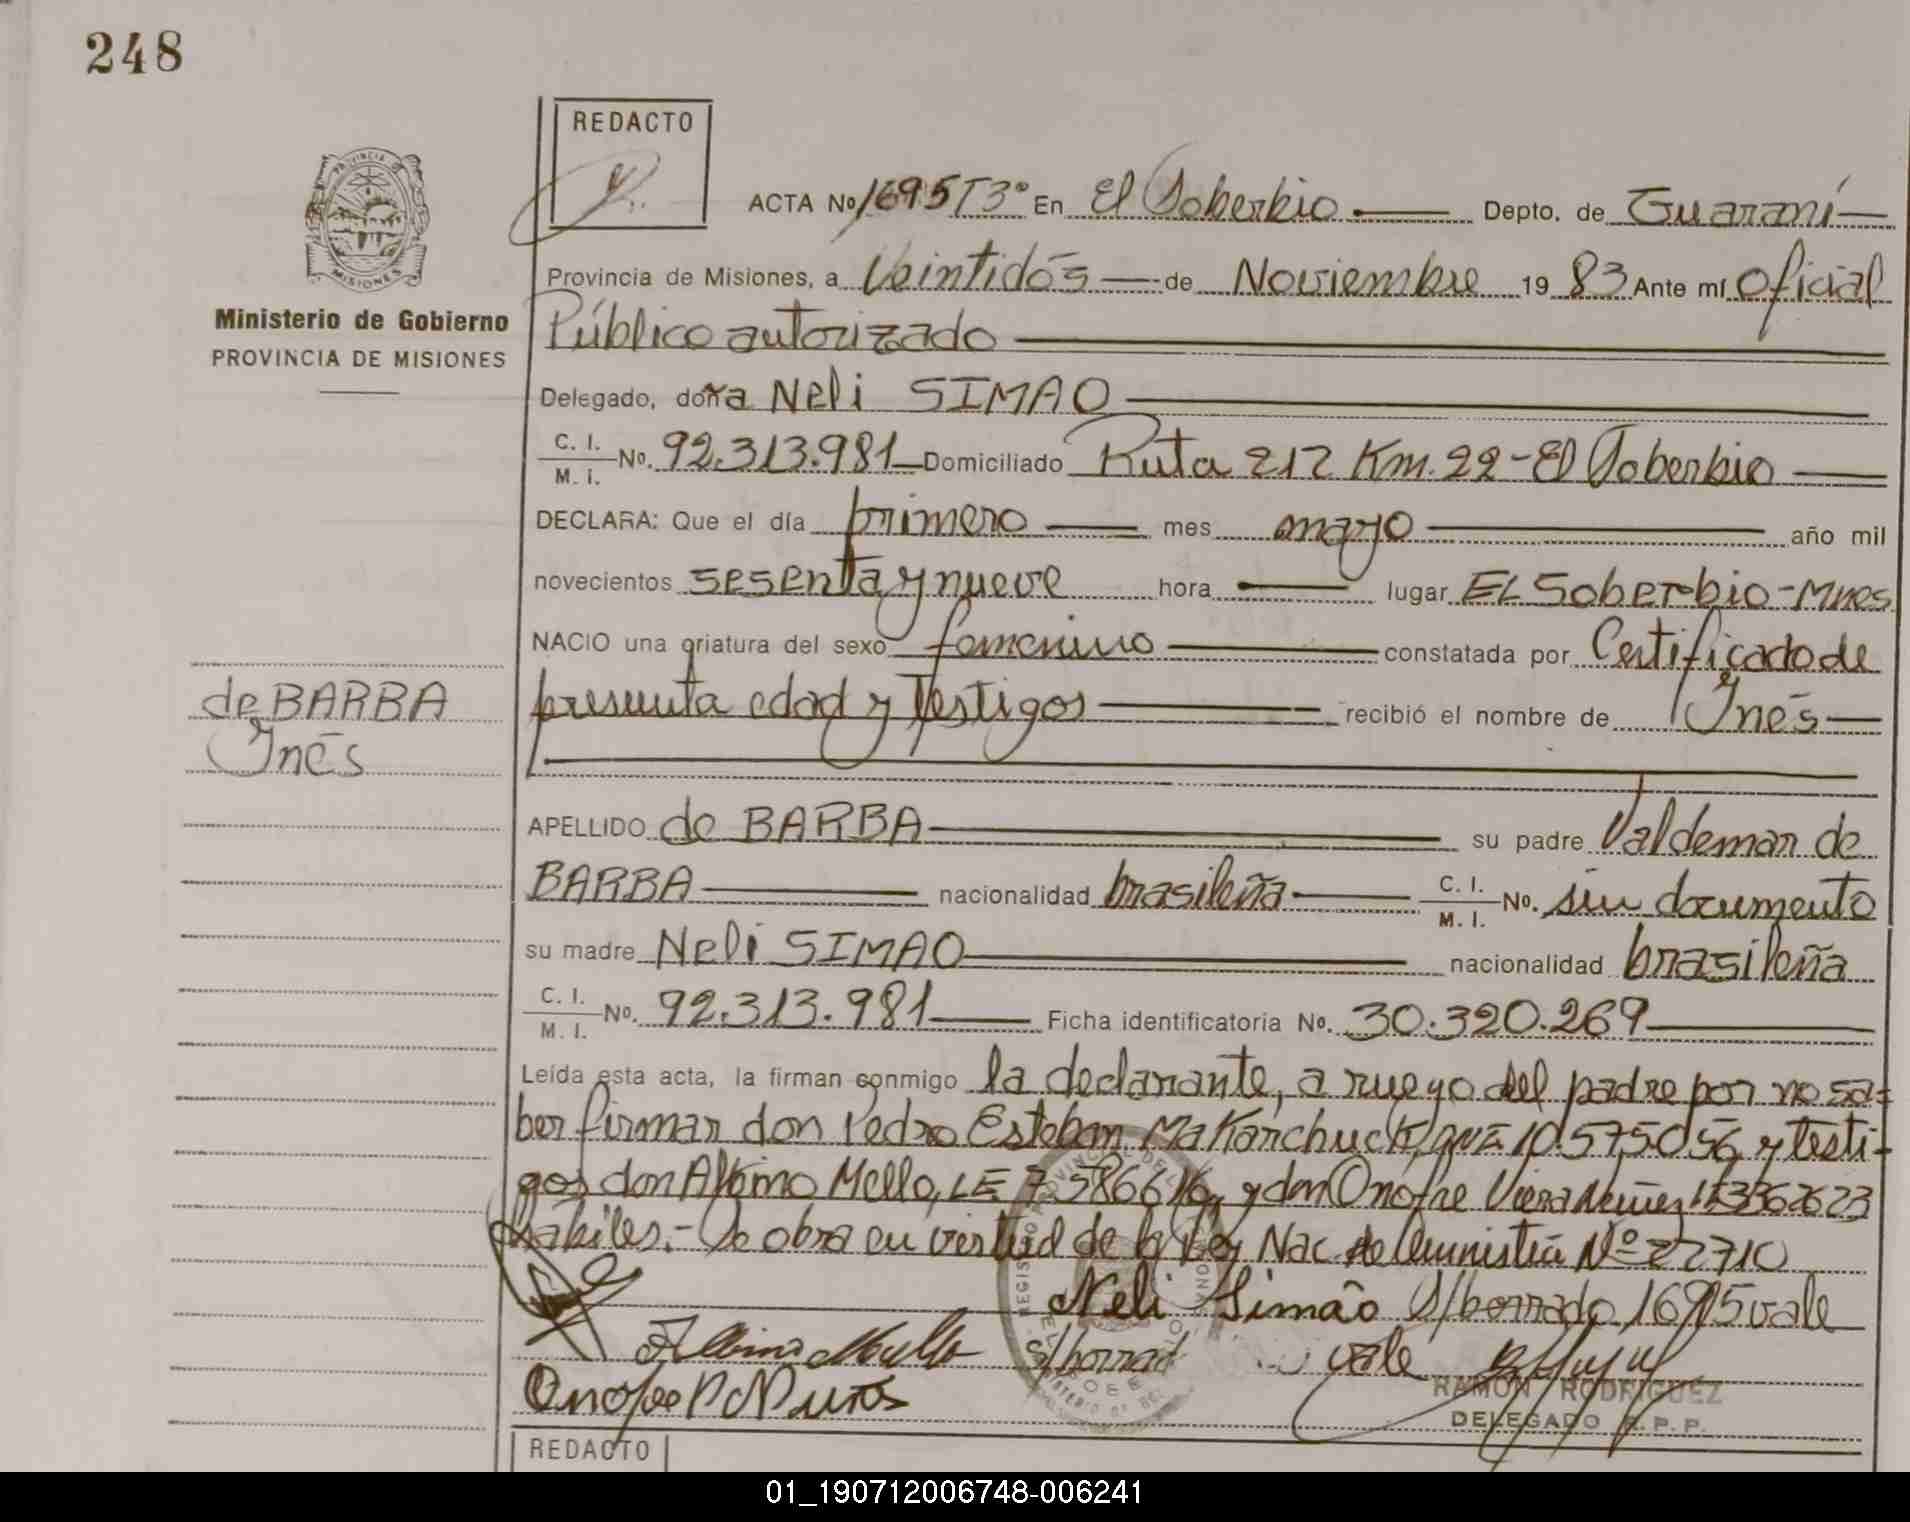 248
REDACTO
ACTA No 1695 T3° En El Soberbio Depto. de Guaraní
PROVINCIA DE MISIONES
Provincia de Misiones, a Veintidós de Noviembre 1983 Ante mí Oficial
Ministerio de Gobierno
PROVINCIA DE MISIONES
Público autorizado
Delegado, doña Neli SIMAO
C. I. M. I. No. 92.313.981 Domiciliado Ruta 212 Km. 22 - El Soberbio
DECLARA: Que el día primero mes mayo año mil
novecientos sesenta y nueve hora lugar EL Soberbio - Mnes
NACIO una criatura del sexo femenino constatada por Certificado de
de BARBA
Inés
presunta edad y Testigos recibió el nombre de Inés
APELLIDO de BARBA su padre Valdemar de
BARBA nacionalidad brasileña C. I. M. I. No. sin documento
su madre Neli SIMAO nacionalidad brasileña
C. I. M. I. No. 92.313.981 Ficha identificatoria No. 30.320.269
Leída esta acta, la firman conmigo la declarante, a ruego del padre por no sa=
ber firmar don Pedro Esteban Makarchuck, 10.575.056 y testi-
gos don Albino Mello, LE 7.586.616, y don Onofre Viera 3362623
habiles.- Se obra en virtud de la Ley Nac. de Amnistía Nº 22710
Neli Simão S/borrado 1695 vale
Albino Mello S/borrado vale
Onofre
RAMON RODRIGUEZ
DELEGADO R.P.P.
REDACTO
01_190712006748-006241